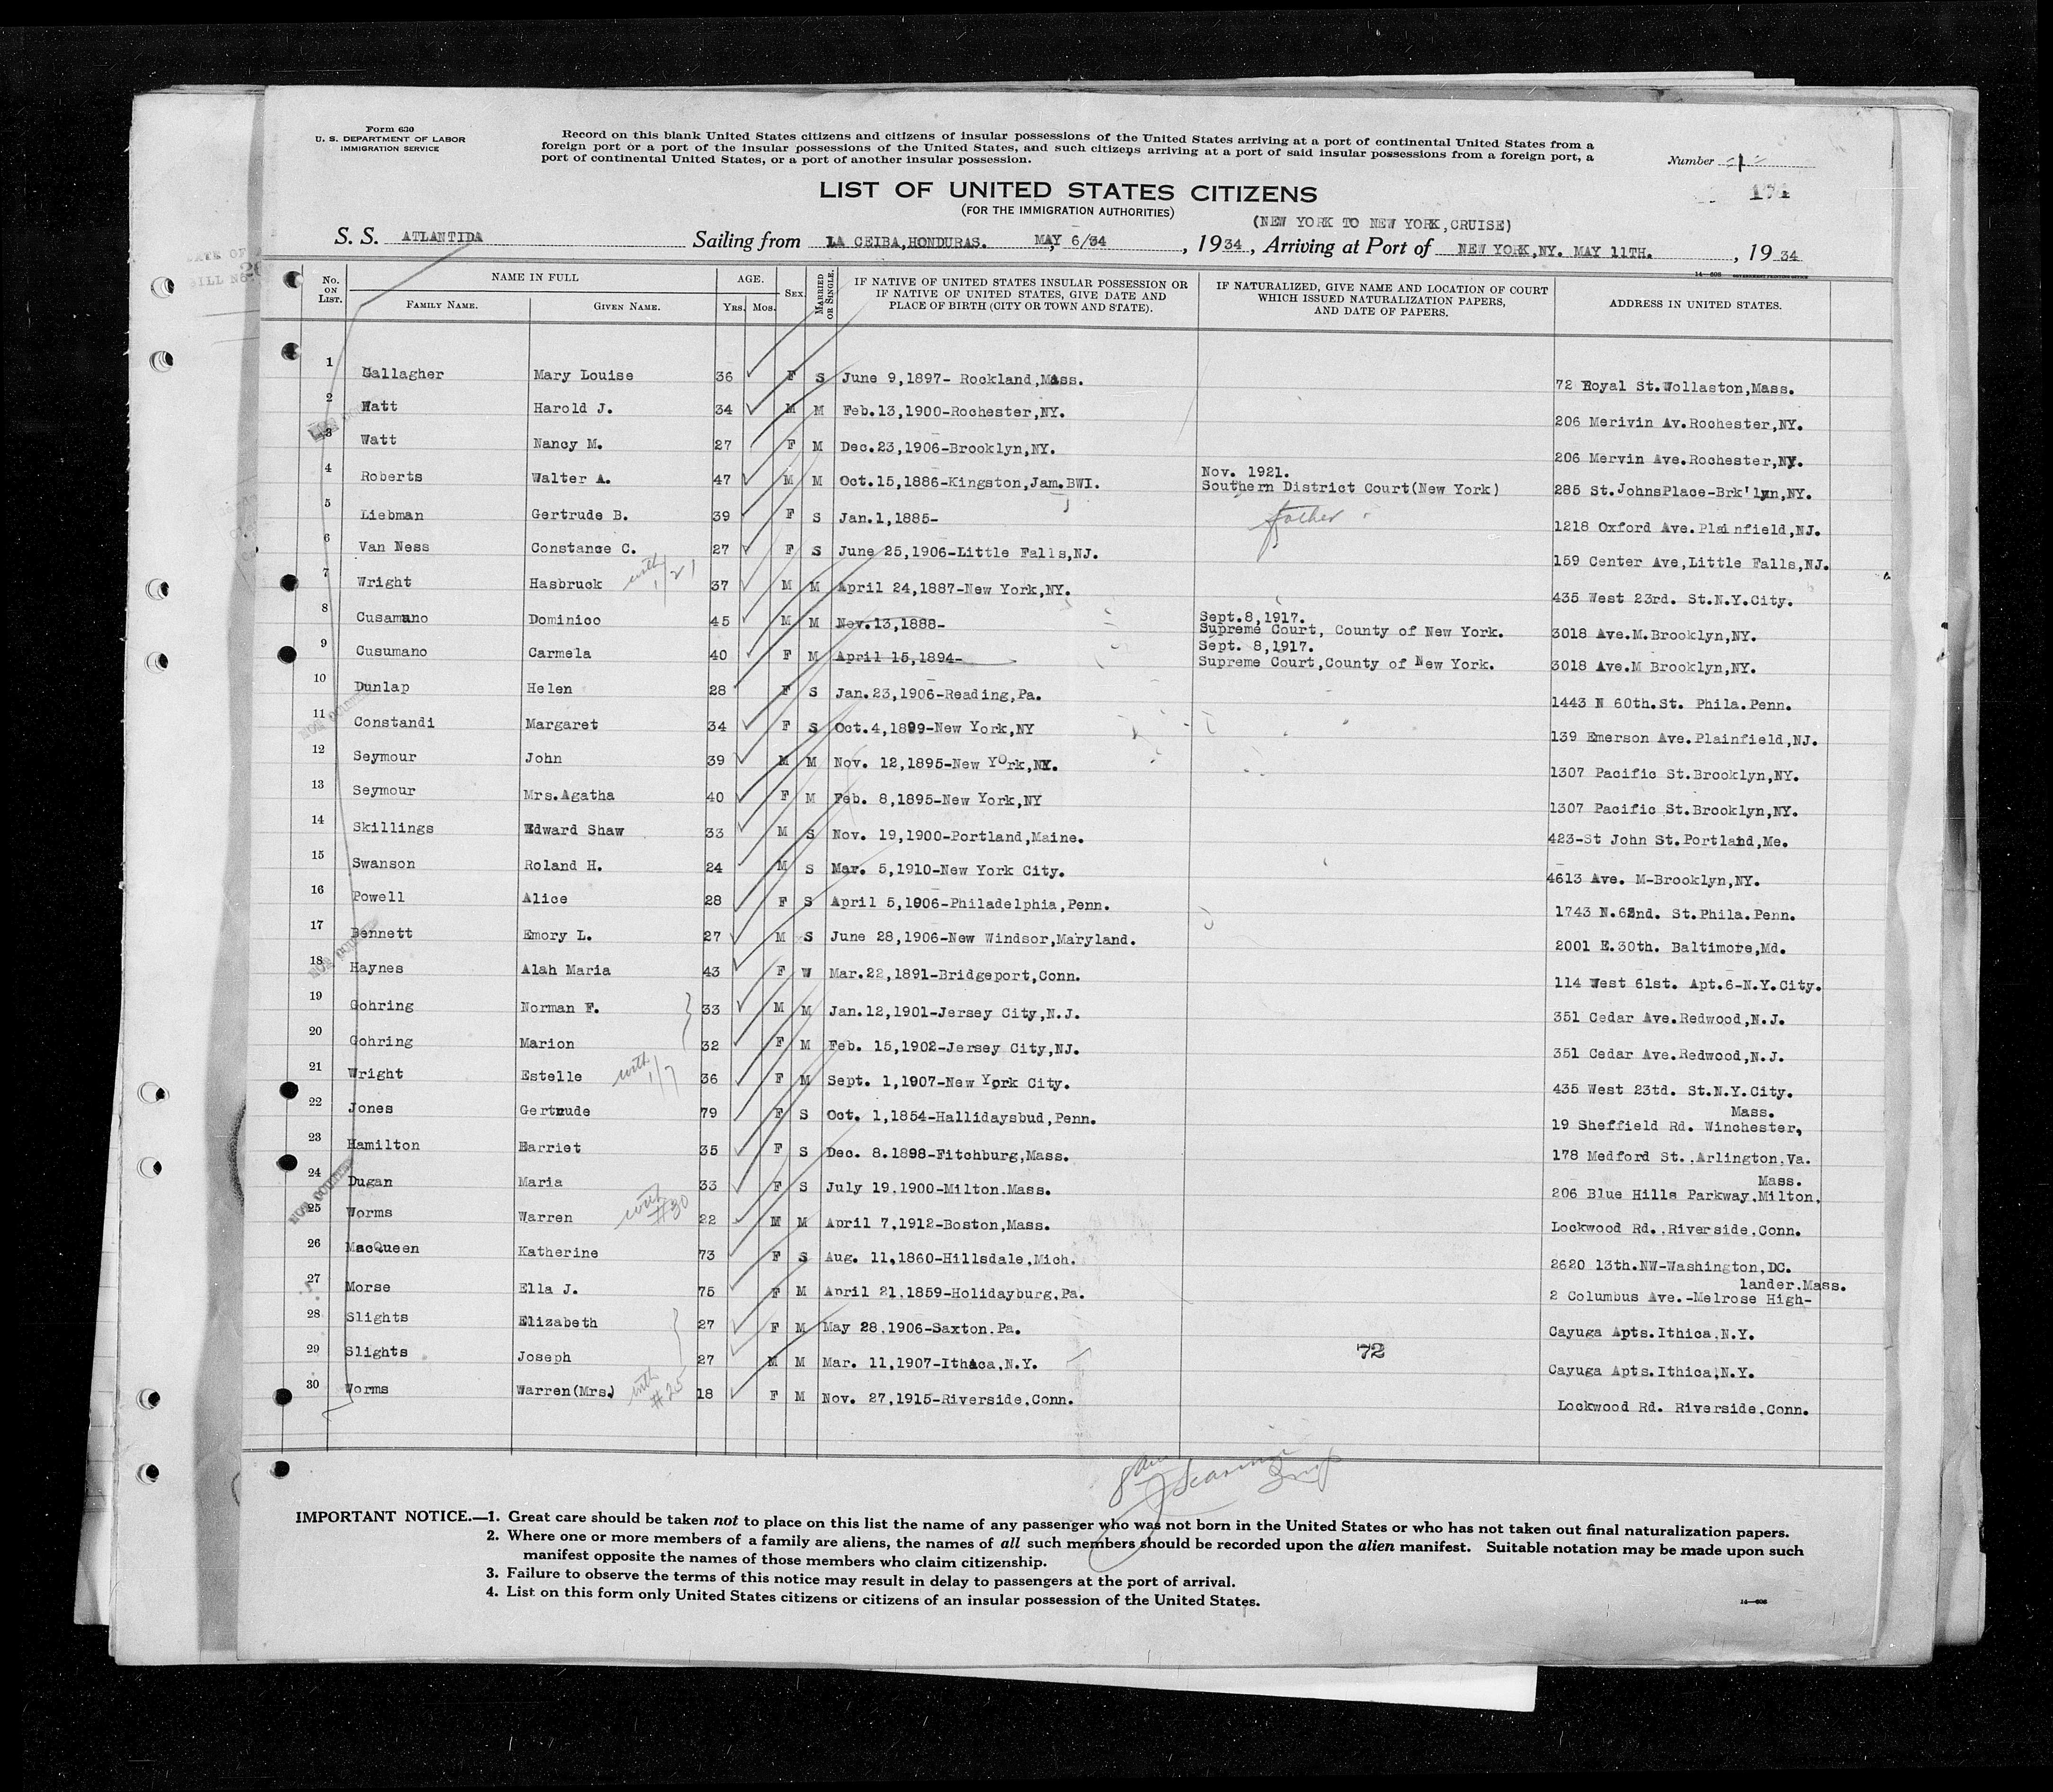 Form 630
U. S. DEPARTMENT OF LABOR
IMMIGRATION SERVICE
Record on this blank United States citizens and citizens of insular possessions of the United States arriving at a port of continental United States from a
foreign port or a port of the insular possessions of the United States, and such citizens arriving at a port of said insular possessions from a foreign port, a
port of continental United States, or a port of another insular possession.
Number -1-
174
LIST OF UNITED STATES CITIZENS
(FOR THE IMMIGRATION AUTHORITIES)
(NEW YORK TO NEW YORK,CRUISE)
S. S. ATLANTIDA Sailing from LA CEIBA,HONDURAS. MAY 6/34, 1934, Arriving at Port of NEW YORK,NY. MAY 11TH., 1934
14—608 GOVERNMENT PRINTING OFFICE
No. ON LIST. NAME IN FULL FAMILY NAME. GIVEN NAME. AGE. YRS. MOS. SEX. MARRIED OR SINGLE. IF NATIVE OF UNITED STATES INSULAR POSSESSION OR IF NATIVE OF UNITED STATES, GIVE DATE AND PLACE OF BIRTH (CITY OR TOWN AND STATE). IF NATURALIZED, GIVE NAME AND LOCATION OF COURT WHICH ISSUED NATURALIZATION PAPERS, AND DATE OF PAPERS. ADDRESS IN UNITED STATES.
1 Gallagher Mary Louise 36 F S June 9,1897- Rockland,Mass. 72 Royal St.Wollaston,Mass.
2 Watt Harold J. 34 M M Feb.13,1900-Rochester,NY. 206 Merivin Av.Rochester,NY.
3 Watt Nancy M. 27 F M Dec.23,1906-Brooklyn,NY. 206 Mervin Ave.Rochester,NY.
4 Roberts Walter A. 47 M M Oct.15,1886-Kingston,Jam.BWI. Nov. 1921. Southern District Court(New York) 285 St.JohnsPlace-Brk'lyn,NY.
5 Liebman Gertrude B. 39 F S Jan.1,1885- father 1218 Oxford Ave.Plainfield,NJ.
6 Van Ness Constance C. 27 F S June 25,1906-Little Falls,NJ. 159 Center Ave,Little Falls,NJ.
7 Wright Hasbruck with 1/21 37 M M April 24,1887-New York,NY. 435 West 23rd. St.N.Y.City.
8 Cusamano Dominico 45 M M Nov.13,1888- Sept.8,1917. Supreme Court, County of New York. 3018 Ave.M.Brooklyn,NY.
9 Cusumano Carmela 40 F M April 15,1894- Sept. 8,1917. Supreme Court,County of New York. 3018 Ave.M Brooklyn,NY.
10 Dunlap Helen 28 F S Jan.23,1906-Reading,Pa. 1443 N 60th.St. Phila.Penn.
11 Constandi Margaret 34 F S Oct.4,1899-New York,NY 139 Emerson Ave.Plainfield,NJ.
12 Seymour John 39 M M Nov. 12,1895-New York,NY. 1307 Pacific St.Brooklyn,NY.
13 Seymour Mrs.Agatha 40 F M Feb. 8,1895-New York,NY 1307 Pacific St.Brooklyn,NY.
14 Skillings Edward Shaw 33 M S Nov. 19,1900-Portland,Maine. 423-St John St.Portland,Me.
15 Swanson Roland H. 24 M S Mar. 5,1910-New York City. 4613 Ave. M-Brooklyn,NY.
16 Powell Alice 28 F S April 5,1906-Philadelphia,Penn. 1743 N.62nd. St.Phila.Penn.
17 Bennett Emory L. 27 M S June 28,1906-New Windsor,Maryland. 2001 E.30th. Baltimore,Md.
18 Haynes Alah Maria 43 F W Mar.22,1891-Bridgeport,Conn. 114 West 61st. Apt.6-N.Y.City.
19 Gohring Norman F. 33 M M Jan.12,1901-Jersey City,N.J. 351 Cedar Ave.Redwood,N.J.
20 Gohring Marion 32 F M Feb. 15,1902-Jersey City,NJ. 351 Cedar Ave.Redwood,N.J.
21 Wright Estelle with 1/7 36 F M Sept. 1,1907-New York City. 435 West 23td. St.N.Y.City.
22 Jones Gertrude 79 F S Oct. 1,1854-Hallidaysbud,Penn. 19 Sheffield Rd. Winchester, Mass.
23 Hamilton Harriet 35 F S Dec. 8.1898-Fitchburg,Mass. 178 Medford St.,Arlington,Va.
24 Dugan Maria 33 F S July 19,1900-Milton.Mass. 206 Blue Hills Parkway.Milton, Mass.
25 Worms Warren with #30 22 M M April 7,1912-Boston,Mass. Lockwood Rd.,Riverside,Conn.
26 MacQueen Katherine 73 F S Aug. 11,1860-Hillsdale,Mich. 2620 13th.NW-Washington,DC.
27 Morse Ella J. 75 F M April 21,1859-Holidayburg,Pa. 2 Columbus Ave.-Melrose High-lander,Mass.
28 Slights Elizabeth 27 F M May 28,1906-Saxton,Pa. Cayuga Apts.Ithica,N.Y.
29 Slights Joseph 27 M M Mar. 11,1907-Ithaca,N.Y. 72 Cayuga Apts.Ithica,N.Y.
30 Worms Warren(Mrs.) with #25 18 F M Nov. 27,1915-Riverside,Conn. Lockwood Rd. Riverside,Conn.
IMPORTANT NOTICE.—1. Great care should be taken not to place on this list the name of any passenger who was not born in the United States or who has not taken out final naturalization papers.
2. Where one or more members of a family are aliens, the names of all such members should be recorded upon the alien manifest. Suitable notation may be made upon such
manifest opposite the names of those members who claim citizenship.
3. Failure to observe the terms of this notice may result in delay to passengers at the port of arrival.
4. List on this form only United States citizens or citizens of an insular possession of the United States.
14—608